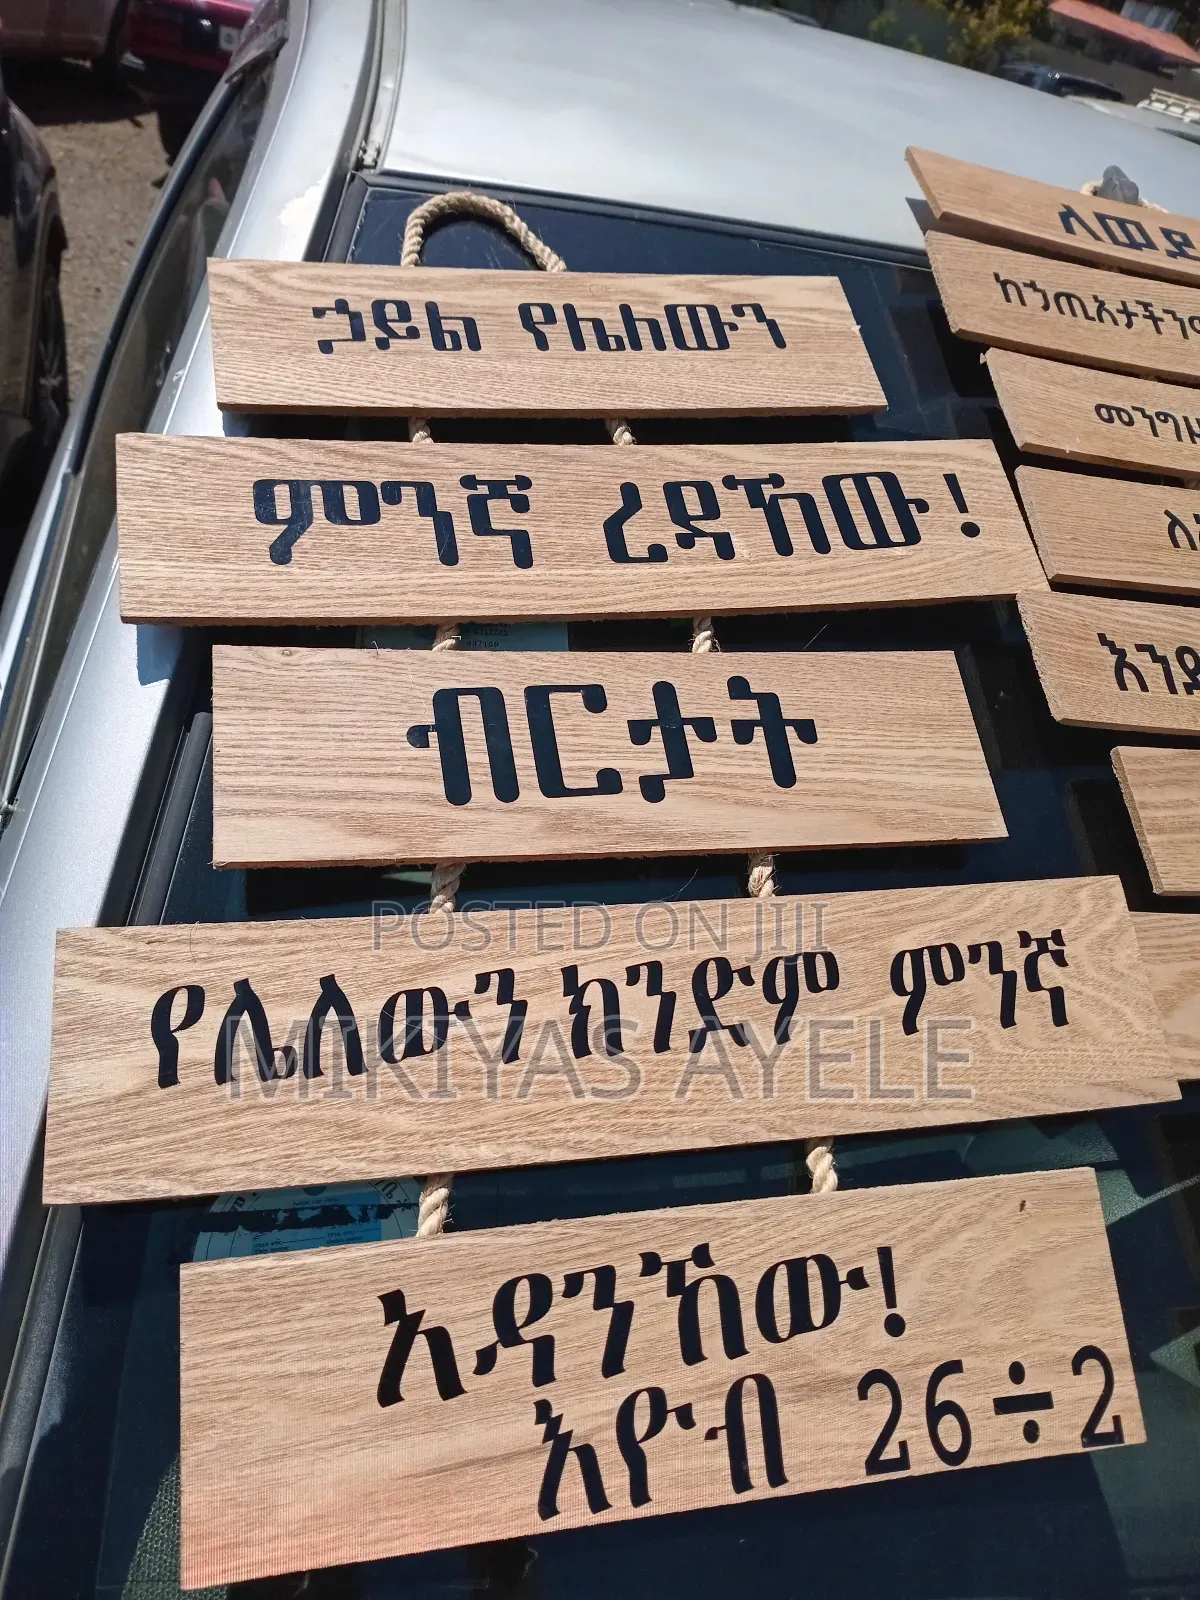 ኃይል የሌለውን
ምንኛ ረዳኸው!
ብርታት
የሌለውን ክንድም ምንኛ
አዳንኸው!
እዮብ 26÷2
ለወደ
ከኃጢአታችን
መንግ
ለ
እንደ
POSTED ON JIJI
MIKIYAS AYELE